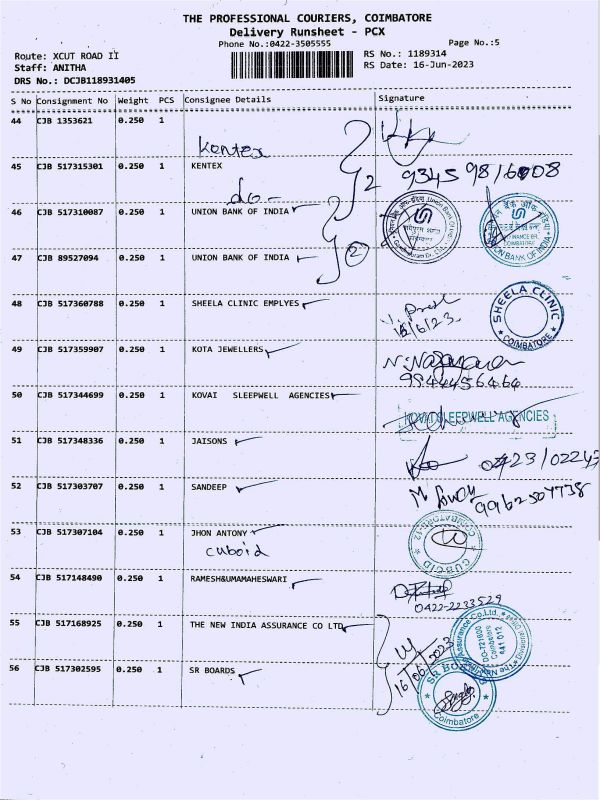 THE PROFESSIONAL COURIERS, COIMBATORE
Delivery Runsheet - PCX
Phone No.:0422-3505555 Page No.:5
Route: XCUT ROAD II RS No.: 1189314
Staff: ANITHA RS Date: 16-Jun-2023
DRS No.: DCJB118931405
S No Consignment No Weight PCS Consignee Details Signature
44 CJB 1353621 0.250 1
Kentex
45 CJB 517315301 0.250 1 KENTEX
do-
2
46 CJB 517310087 0.250 1 UNION BANK OF INDIA
2
47 CJB 89527094 0.250 1 UNION BANK OF INDIA
UNION BANK OF INDIA
48 CJB 517360788 0.250 1 SHEELA CLINIC EMPLYES
SHEELA CLINIC
COIMBATORE
49 CJB 517359907 0.250 1 KOTA JEWELLERS
9944456464
50 CJB 517344699 0.250 1 KOVAI SLEEPWELL AGENCIES
KOVAI SLEEPWELL AGENCIES
51 CJB 517348336 0.250 1 JAISONS
52 CJB 517303707 0.250 1 SANDEEP
53 CJB 517307104 0.250 1 JHON ANTONY
cuboid
54 CJB 517148490 0.250 1 RAMESH&UMAMAHESWARI
0422-2233529
55 CJB 517168925 0.250 1 THE NEW INDIA ASSURANCE CO LTD
16/06/2023
DO-721600
Coimbatore
641 012
56 CJB 517302595 0.250 1 SR BOARDS
SR BOARDS
Coimbatore